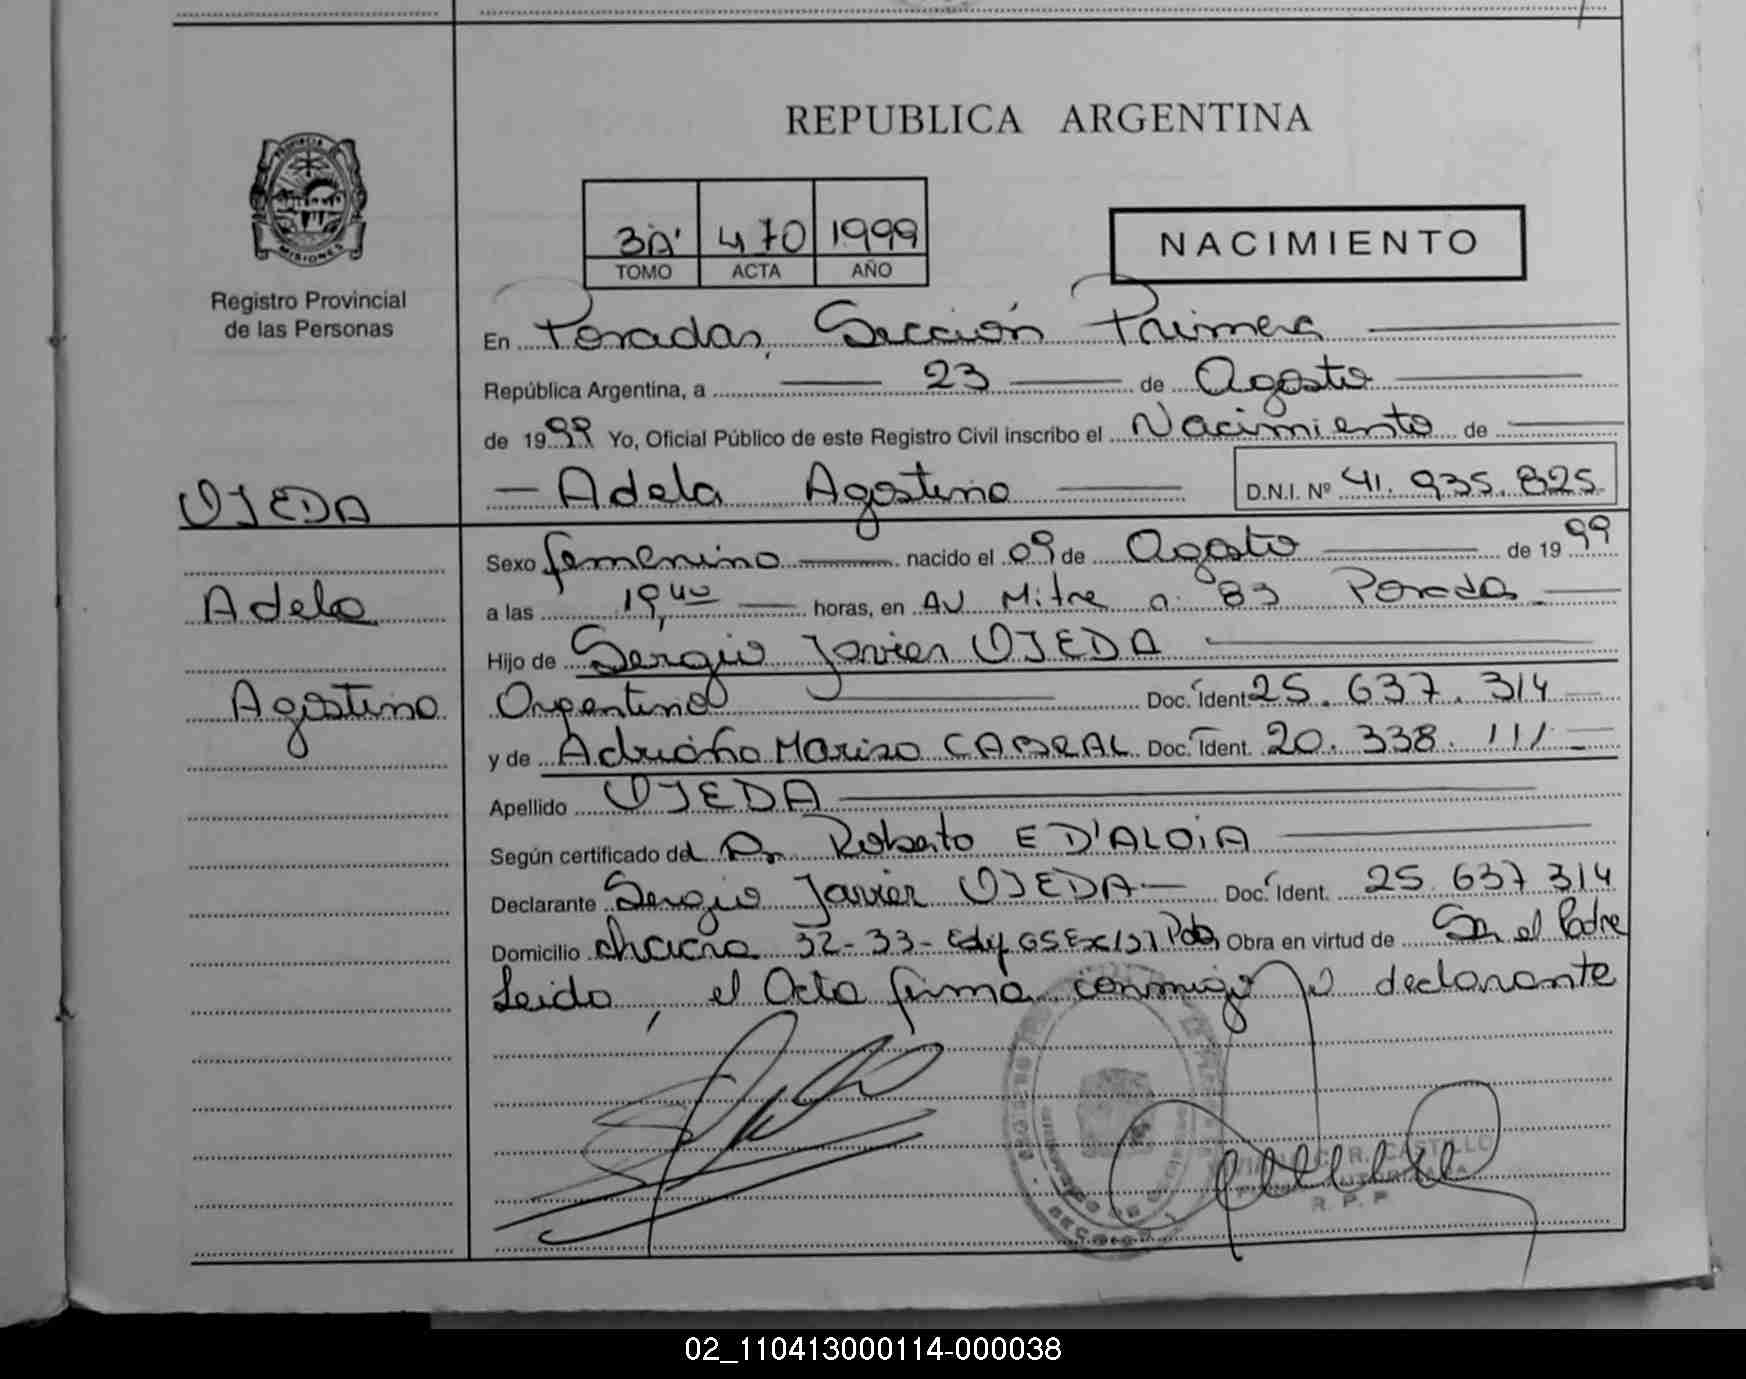 REPUBLICA ARGENTINA
PROVINCIA DE
MISIONES
Registro Provincial
de las Personas
3A' 470 1999
TOMO ACTA AÑO
NACIMIENTO
En Posadas, Sección Primera
República Argentina, a 23 de Agosto
de 1999 Yo, Oficial Público de este Registro Civil inscribo el Nacimiento de
Adela Agostina D.N.I. Nº 41.935.825
OJEDA
Adela
Agostina
Sexo femenino nacido el 09 de Agosto de 1999
a las 19,40 horas, en AV Mitre n: 83 Posadas
Hijo de Sergio Javier OJEDA
Argentino Doc. Ident. 25.637.314
y de Adriana Marisa CABRAL Doc. Ident. 20.338.111
Apellido OJEDA
Según certificado del Dr Roberto E D'ALOIA
Declarante Sergio Javier OJEDA Doc. Ident. 25 637 314
Domicilio chacra 32-33- Edif Obra en virtud de Ser el Padre
Leida, el Acta firma conmigo el declarante
R. CASTILLO
R. P. P.
02_110413000114-000038